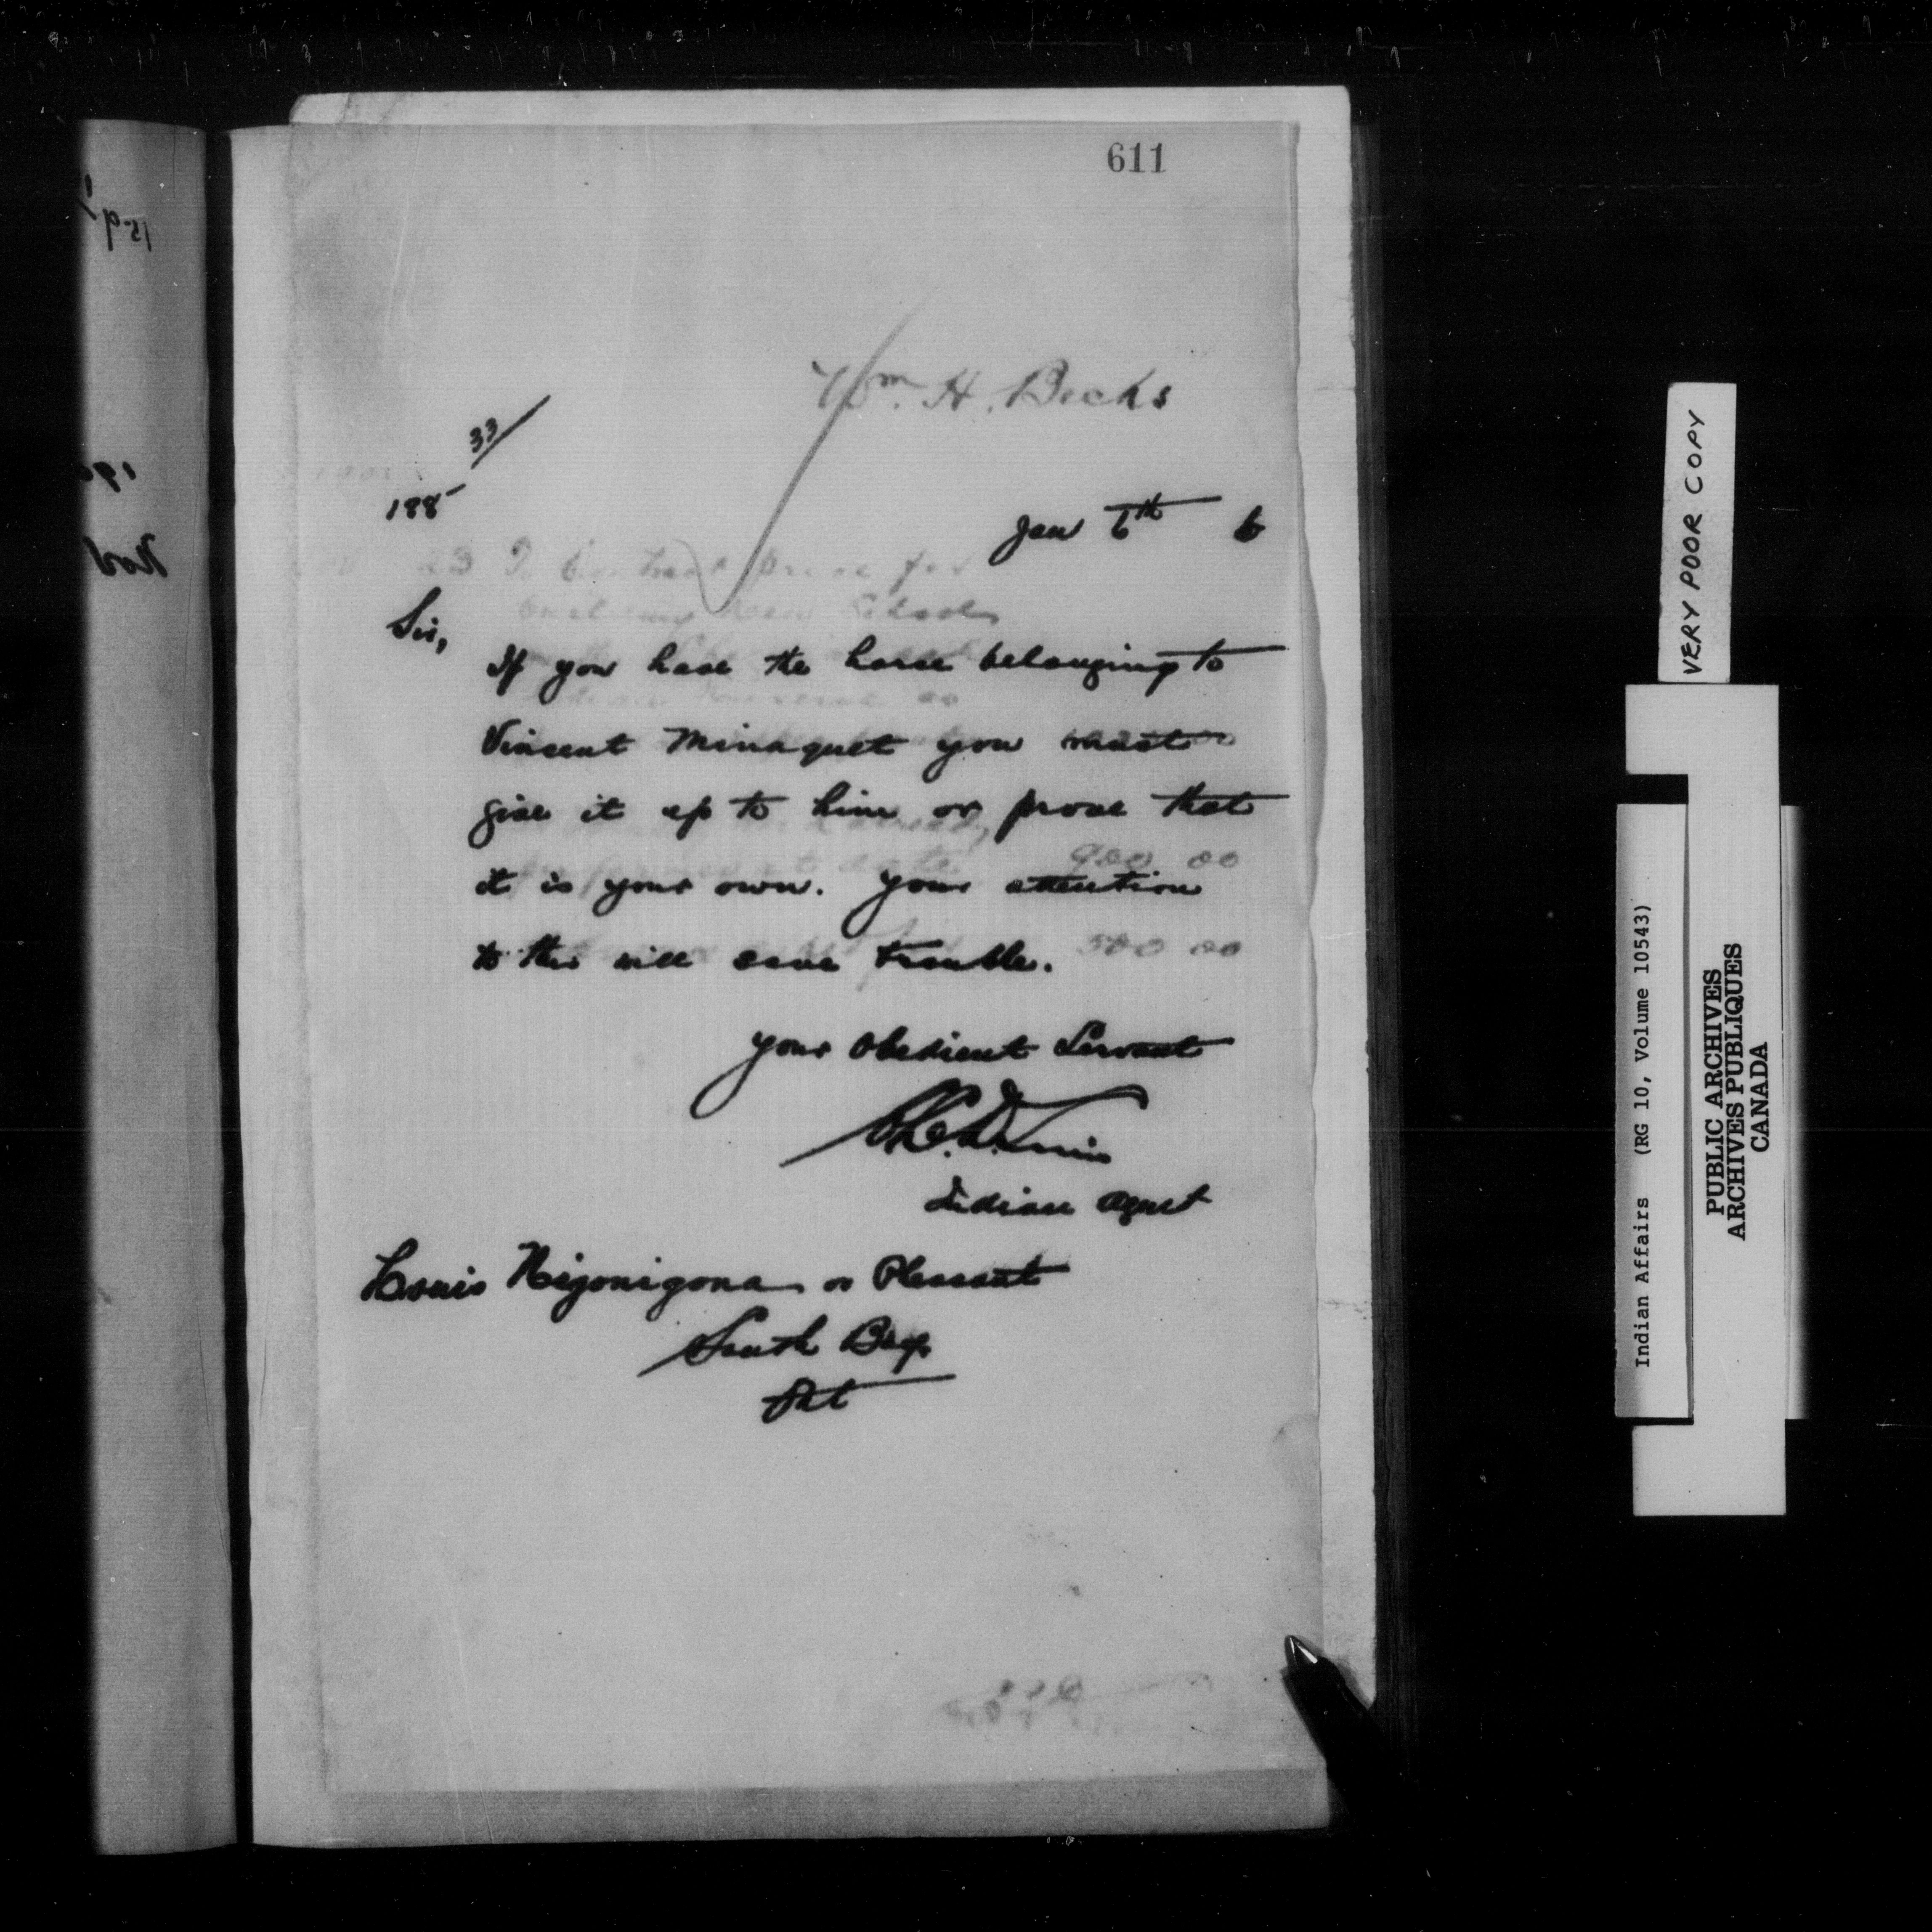 611
Wm. H. Becks
33
188
Jan 6th 6
Sir,
If you have the horse belonging to
Vincent Minaquet you must
give it up to him or prove that
it is your own. Your attention
to this will save trouble.
900 00
500 00
Your Obedient Servant
Indian Agent
Louis Nigonigona or Pleasant
South Bay
Ont
VERY POOR COPY
Indian Affairs (RG 10, Volume 10543)
PUBLIC ARCHIVES
ARCHIVES PUBLIQUES
CANADA